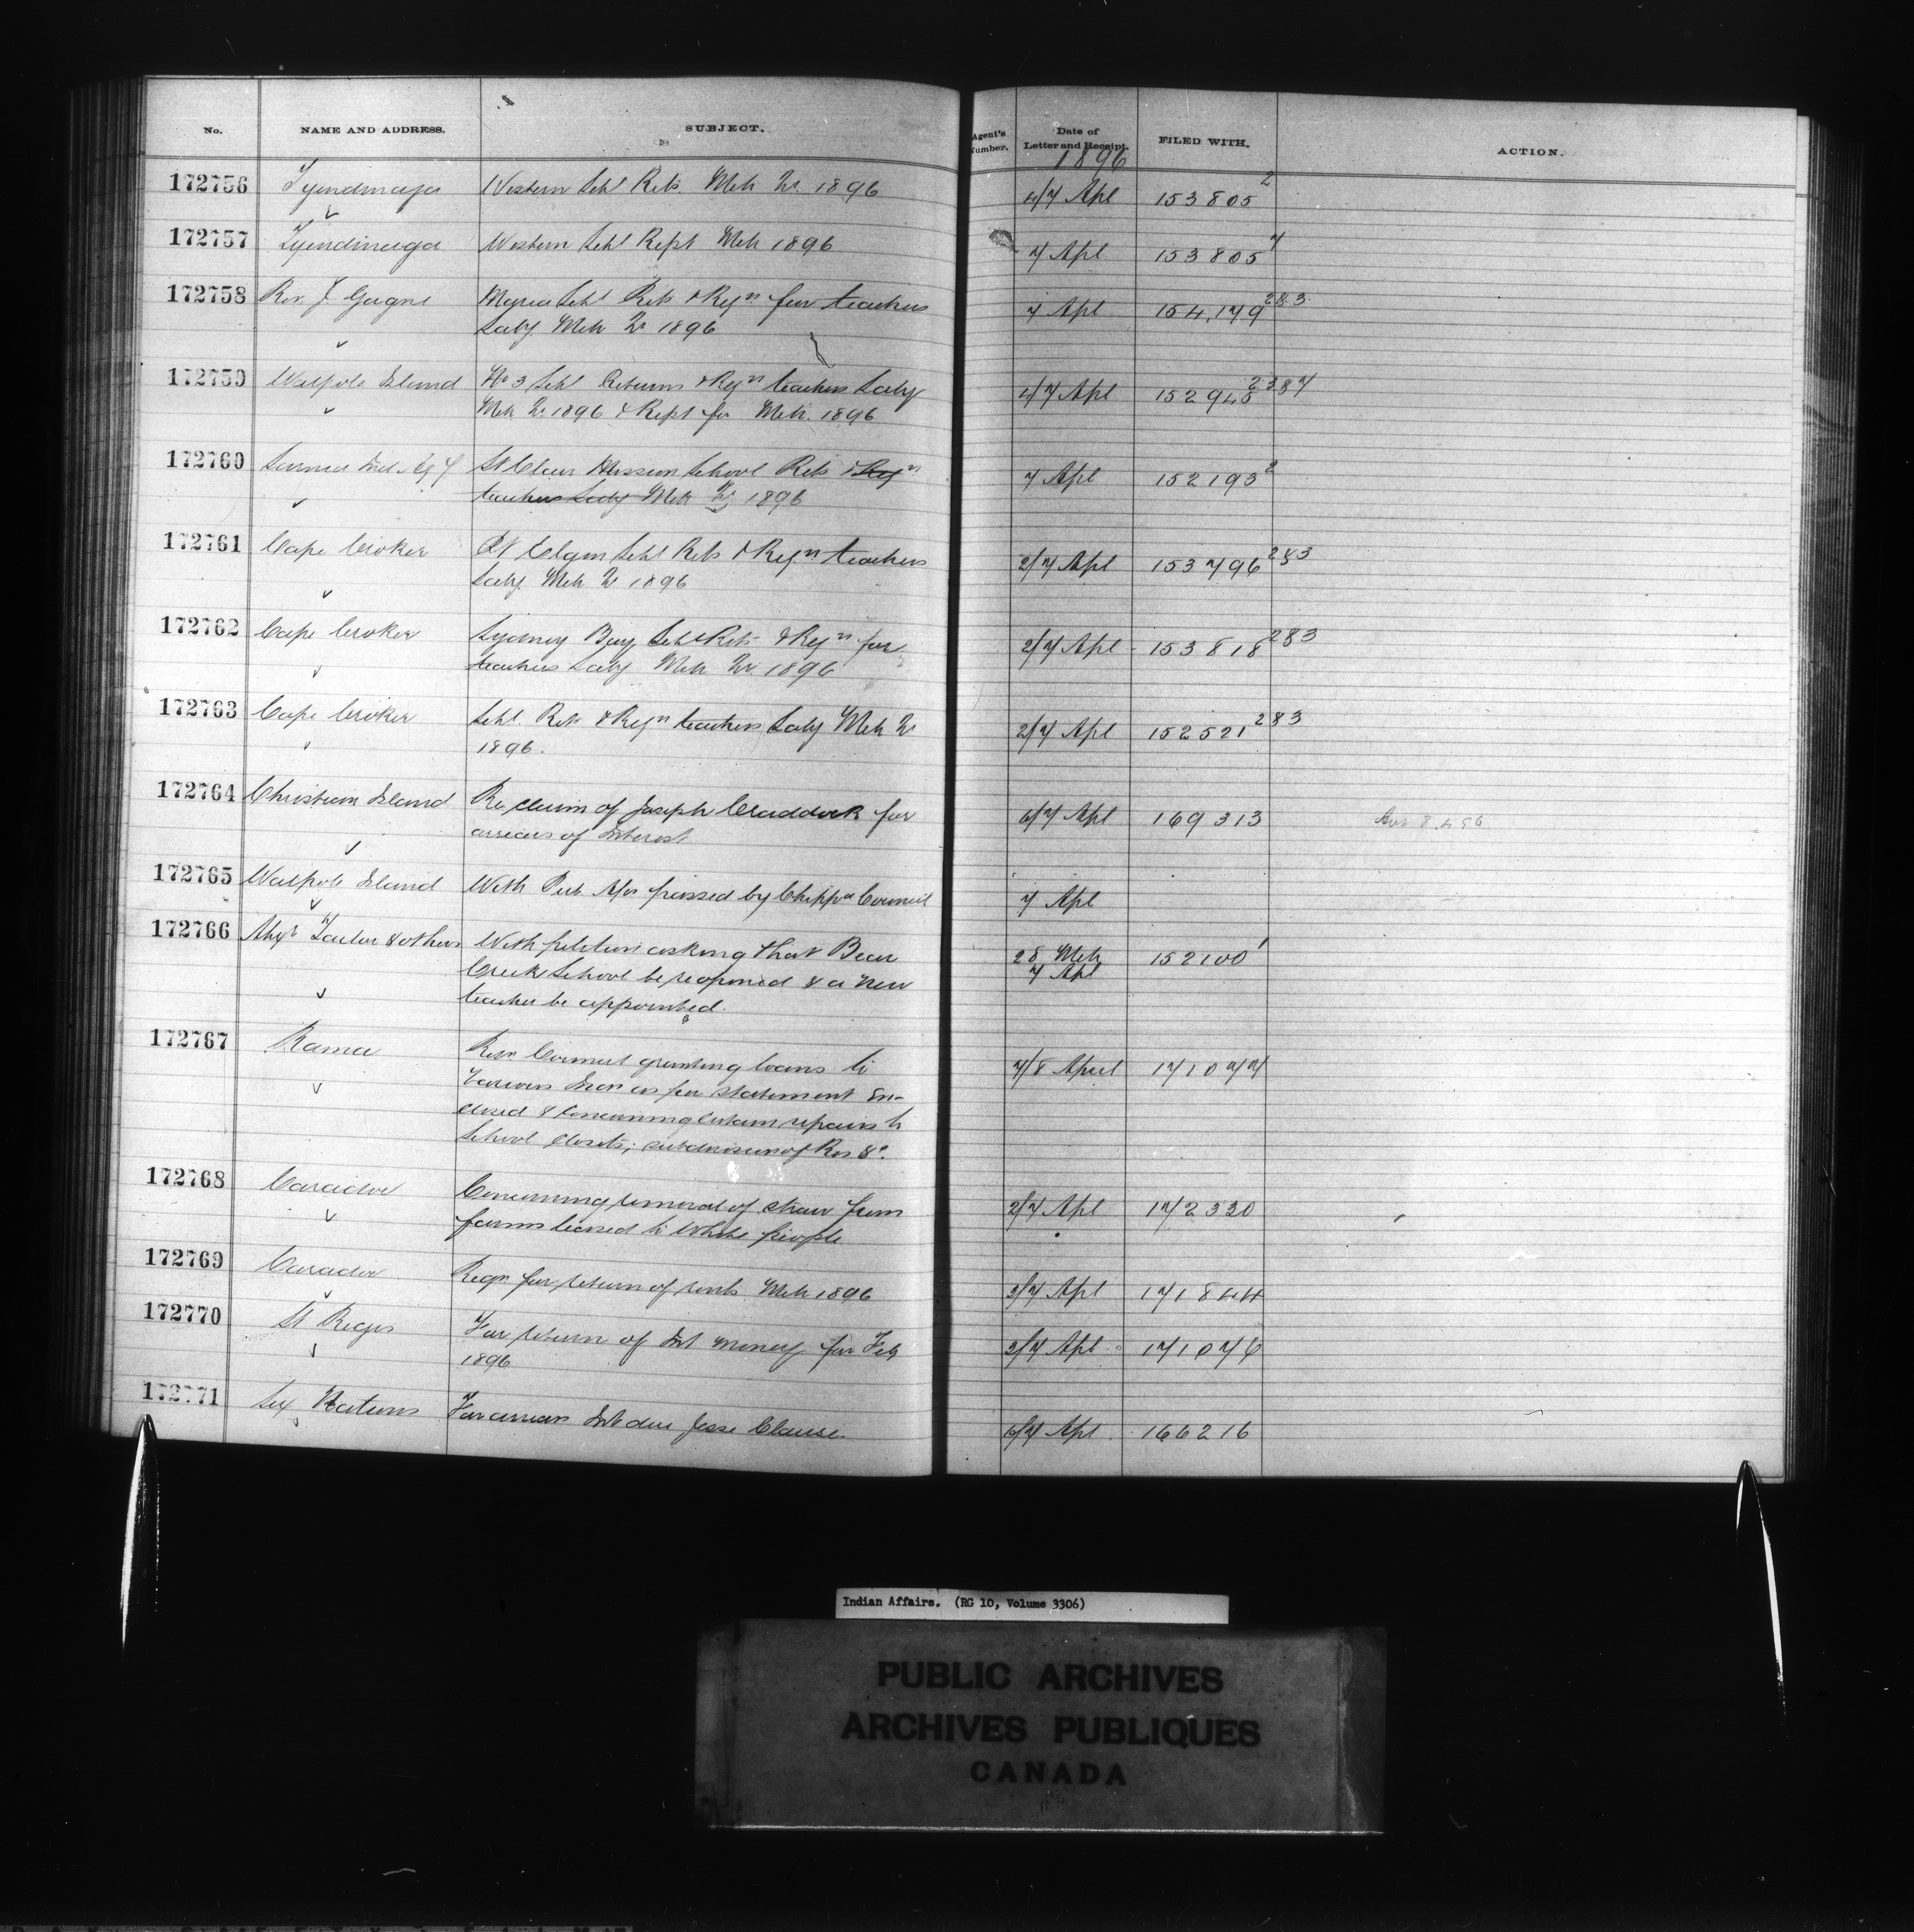 No. NAME AND ADDRESS. SUBJECT. Agent's Number. Date of Letter and Receipt. FILED WITH. ACTION.
1896
172756 Tyendinaga Western Schl Rets. Mch Qr. 1896 4/7 Apl 153805 2
172757 Tyendinaga Western Schl Rept Mch 1896 7 Apl 153805 7
172758 Rev. J. Gagne Maria Schl Rets &Reqn for teachers 7 Apl 154,179 2&3
Saly. Mch Qr 1896
172759 Walpole Island No 3 Schl Returns &Reqn teachers Saly 4/7 Apl 152945 2 3&7
Mch Qr 1896 & Rept for Mch. 1896
172760 Sarnia Ind. Agy St Clair Mission School Rets & Reqn 7 Apl 152193 2
teachers Saly Mch Qr 1896
172761 Cape Croker Pt Elgin Schl Rets & Reqn teachers 2/7 Apl 153796 2&3
Saly. Mch Qr 1896
172762 Cape Croker Sydney Bay Schl Rets &Reqn for 2/7 Apl 153818 2&3
teachers Saly Mch Qr. 1896
172763 Cape Croker Schl. Rets &Reqn teachers Saly Mch Qr 2/7 Apl 152521 2&3
1896.
172764 Christian Island Re claim of Joseph Craddock for 6/7 Apl 169313
arrears of Interest
172765 Walpole Island With passed by Chippa Council 7 Apl
172766 Alexr & others With petition asking that Bear 28 Mch 152100 1
Creek School be reopened & a new 7 Apl
teacher be appointed.
172767 Rama Resn Council granting loans to 7/8 April 171077
various Inds as per statement En-
closed & Concerning certain repairs to
School closets; subdivision of Res &c.
172768 Caradoc Concerning removal of straw from 2/7 Apl 172330
farms leased to White people
172769 Caradoc Reqn for return of rents Mch 1896 3/7 Apl 171844
172770 St Regis For return of Int money for Feb 3/7 Apl 171076
1896
172771 Six Nations For arrears Int due Jesse Clause 6/7 Apl 166216
Indian Affairs. (RG 10, Volume 3306)
PUBLIC ARCHIVES
ARCHIVES PUBLIQUES
CANADA